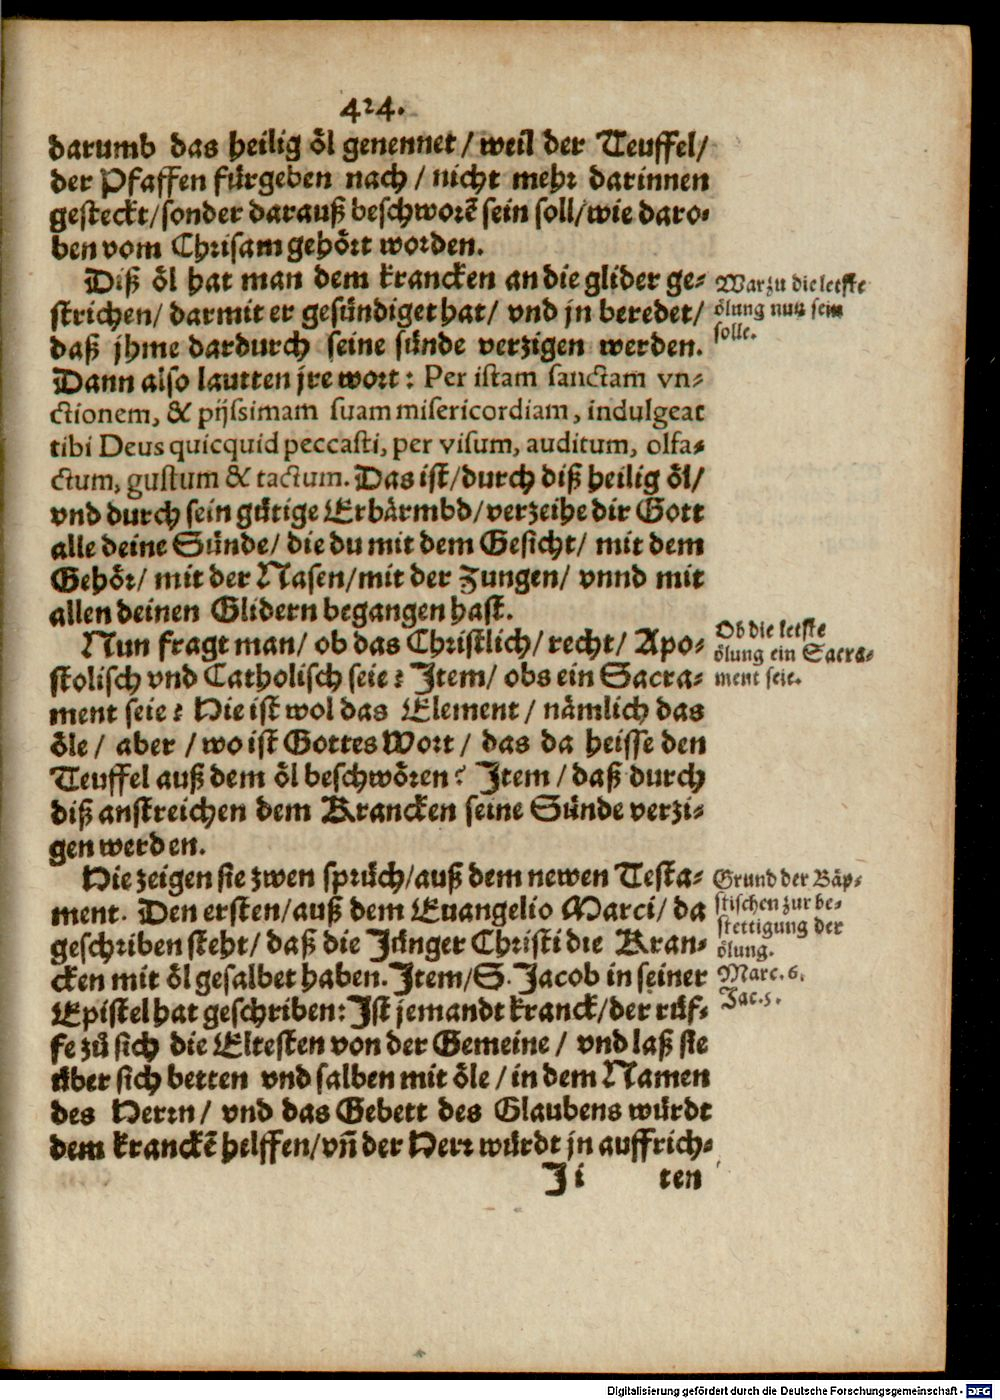 424.
darumb das heilig öl genennet / weil der Teuffel /
der Pfaffen fürgeben nach / nicht mehr darinnen
gesteckt / sonder darauß beschworẽ sein soll / wie daro-
ben vom Chrisam gehört worden.
Diß öl hat man dem krancken an die glider ge-
strichen / darmit er gesündiget hat / vnd jn beredet /
daß jhme dardurch seine sünde verzigen werden.
Dann also lautten jre wort: Per istam sanctam vn-
ctionem, & pijssimam suam misericordiam, indulgeat
tibi Deus quicquid peccasti, per visum, auditum, olfa-
ctum, gustum & tactum. Das ist / durch diß heilig öl /
vnd durch sein gütige Erbärmbd / verzeihe dir Gott
alle deine Sünde / die du mit dem Gesicht / mit dem
Gehör / mit der Nasen / mit der Zungen / vnnd mit
allen deinen Glidern begangen hast.
Nun fragt man / ob das Christlich / recht / Apo-
stolisch vnd Catholisch seie? Item / obs ein Sacra-
ment seie? Hie ist wol das Element / nämlich das
öle / aber / wo ist Gottes Wort / das da heisse den
Teuffel auß dem öl beschwören? Item / daß durch
diß anstreichen dem Krancken seine Sünde verzi-
gen werden.
Hie zeigen sie zwen sprüch / auß dem newen Testa-
ment. Den ersten / auß dem Euangelio Marci / da
geschriben steht / daß die Jünger Christi die Kran-
cken mit öl gesalbet haben. Item / S. Jacob in seiner
Epistel hat geschriben: Ist jemandt kranck / der rüf-
fe zů sich die Eltesten von der Gemeine / vnd laß sie
über sich betten vnd salben mit öle / in dem Namen
des Herrn / vnd das Gebett des Glaubens würdt
dem kranckẽ helffen / vñ der Herr würdt jn auffrich-
Ii ten
Warzu die letste
ölung nun sein
solle.
Ob die letste
ölung ein Sacra-
ment seie.
Grund der Bäp-
stischen zur be-
stettigung der
ölung.
Marc. 6.
Jac. 5.
Digitalisierung gefördert durch die Deutsche Forschungsgemeinschaft - DFG